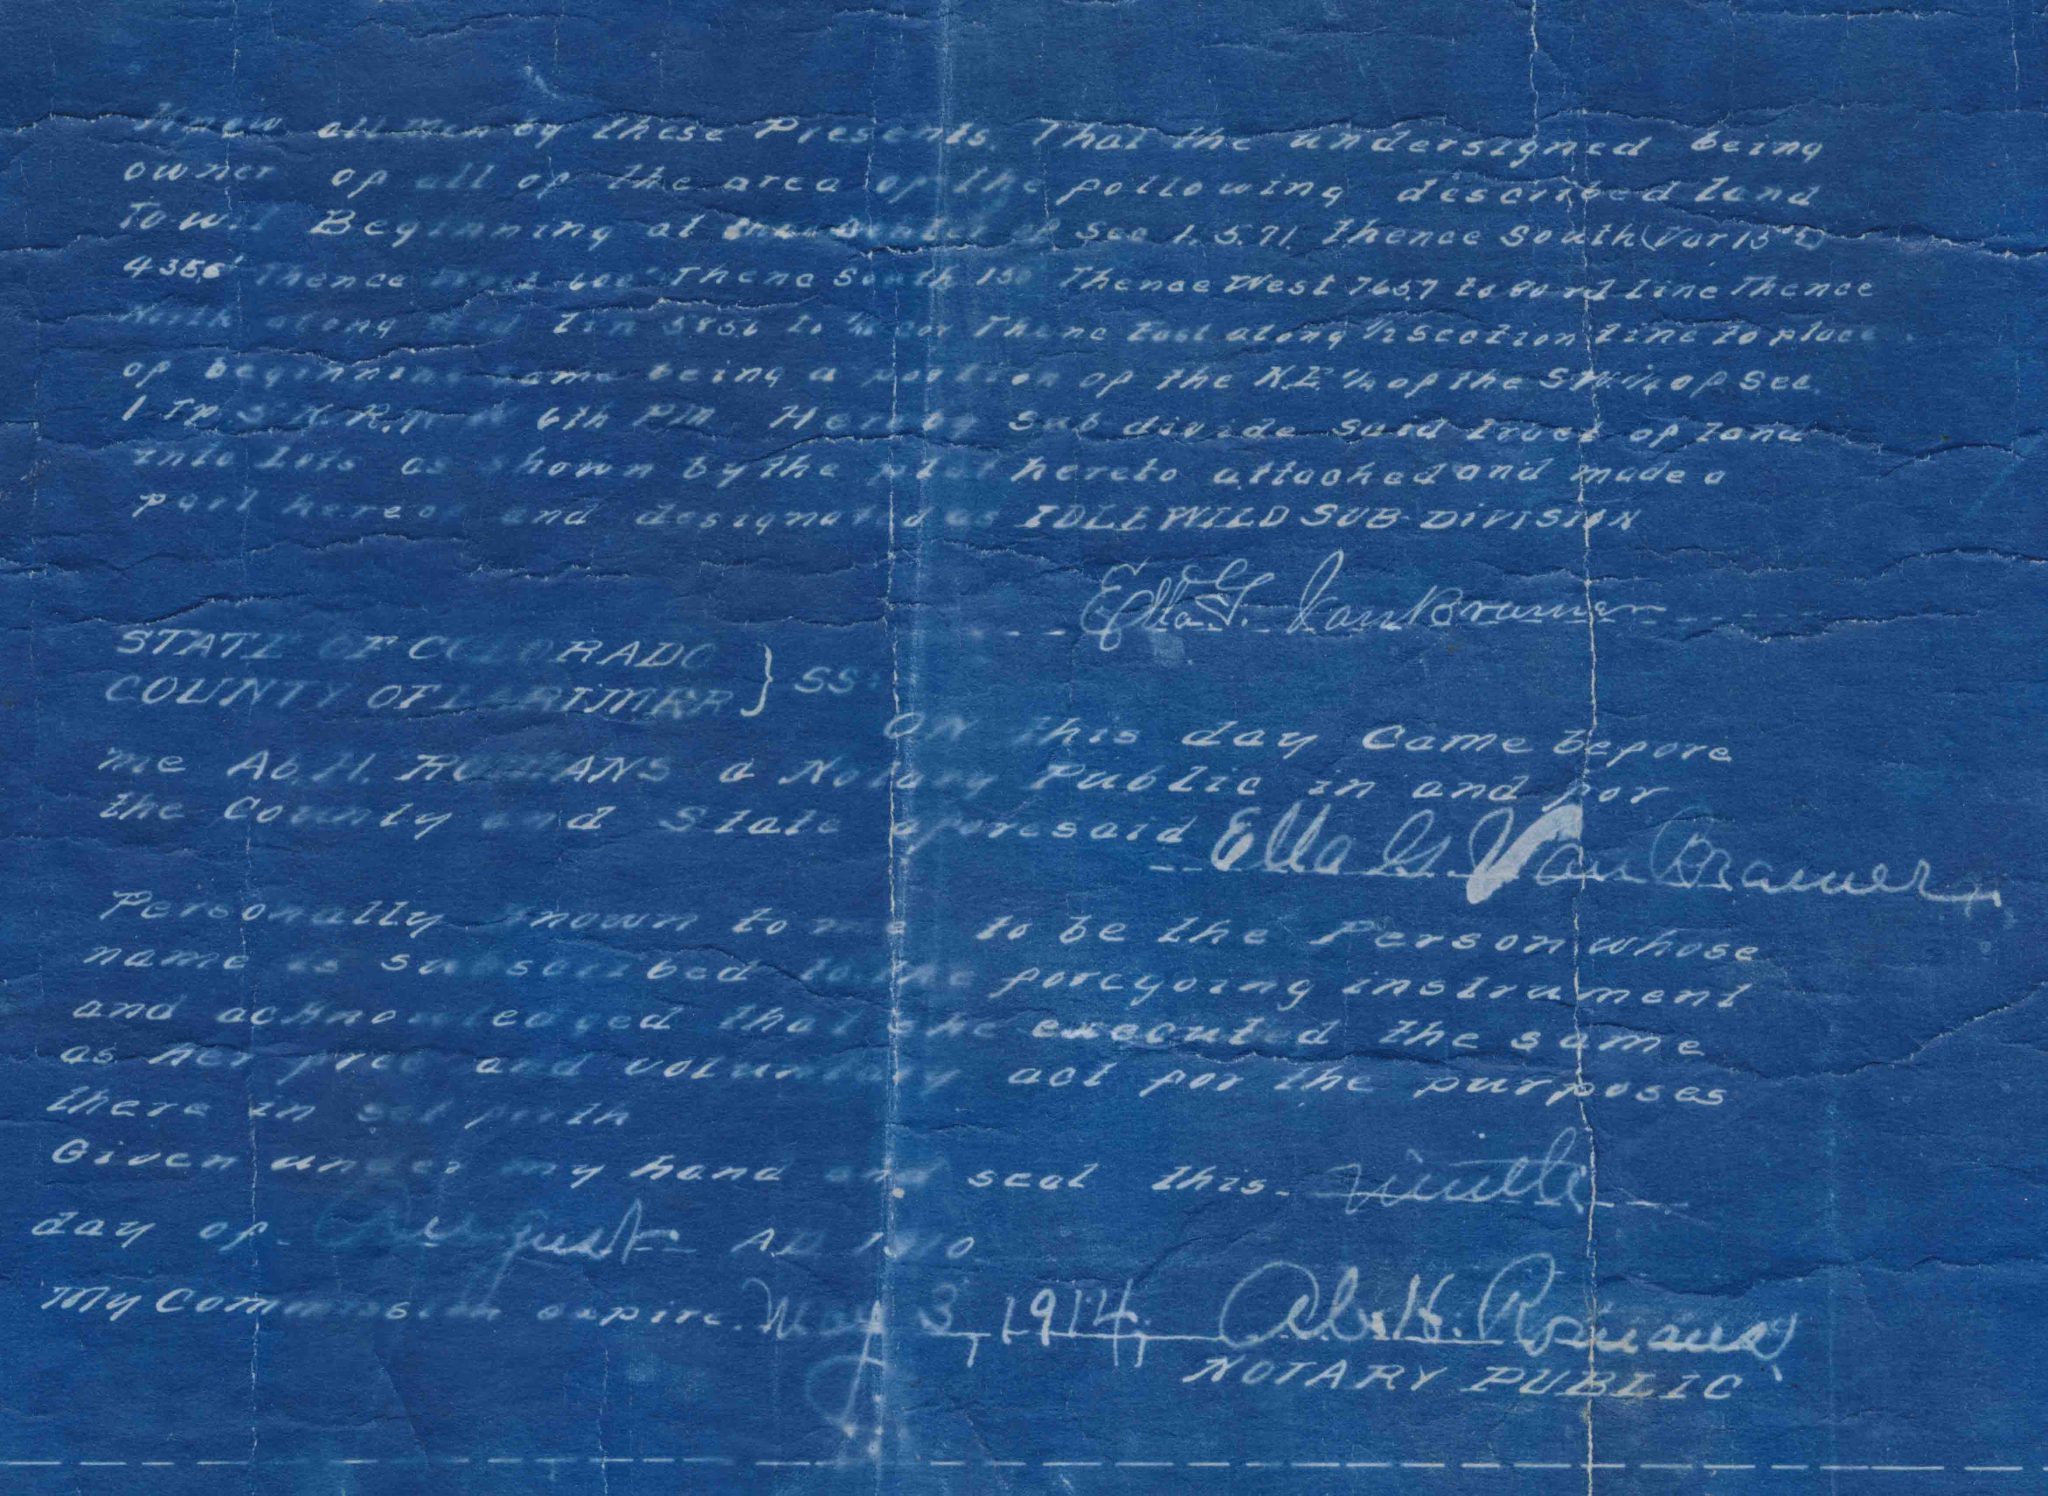 Know all men by these Presents. That the undersigned being
owner of all of the area of the following described land
Towit Beginning at the of Sec 1. 5. 71. thence South (Var 15°
Thence 600' Thenc South 150 Thence West 765.7 to line Thence
North along said Lin to ¼ cor Thenc East along ½ section line to place
of beginning same being a portion of the N.E. ¼ of the SW ¼ of Sec.
1 Tp. 5 N. R. 71 W 6th P.M. Hereby Sub divide said tract of land
into Lots as shown by the plat hereto attached and made a
part hereof and designated as IDLEWILD SUB-DIVISION
Ella G. Van Bramer
STATE OF COLORADO } SS:
COUNTY OF LARIMER
ON this day came before
me Ab. H. ROMANS a Notary Public in and for
the County and State aforesaid Ella G. Van Bramer
Personally known to me to be the Person whose
name is subscribed to the foregoing instrument
and acknowledged that she executed the same
as her free and voluntary act for the purposes
there in set forth
Given under my hand and seal this ninth
day of August A.D. 1910
My Commission expire. May 3, 1914. Ab. H. Romans
NOTARY PUBLIC